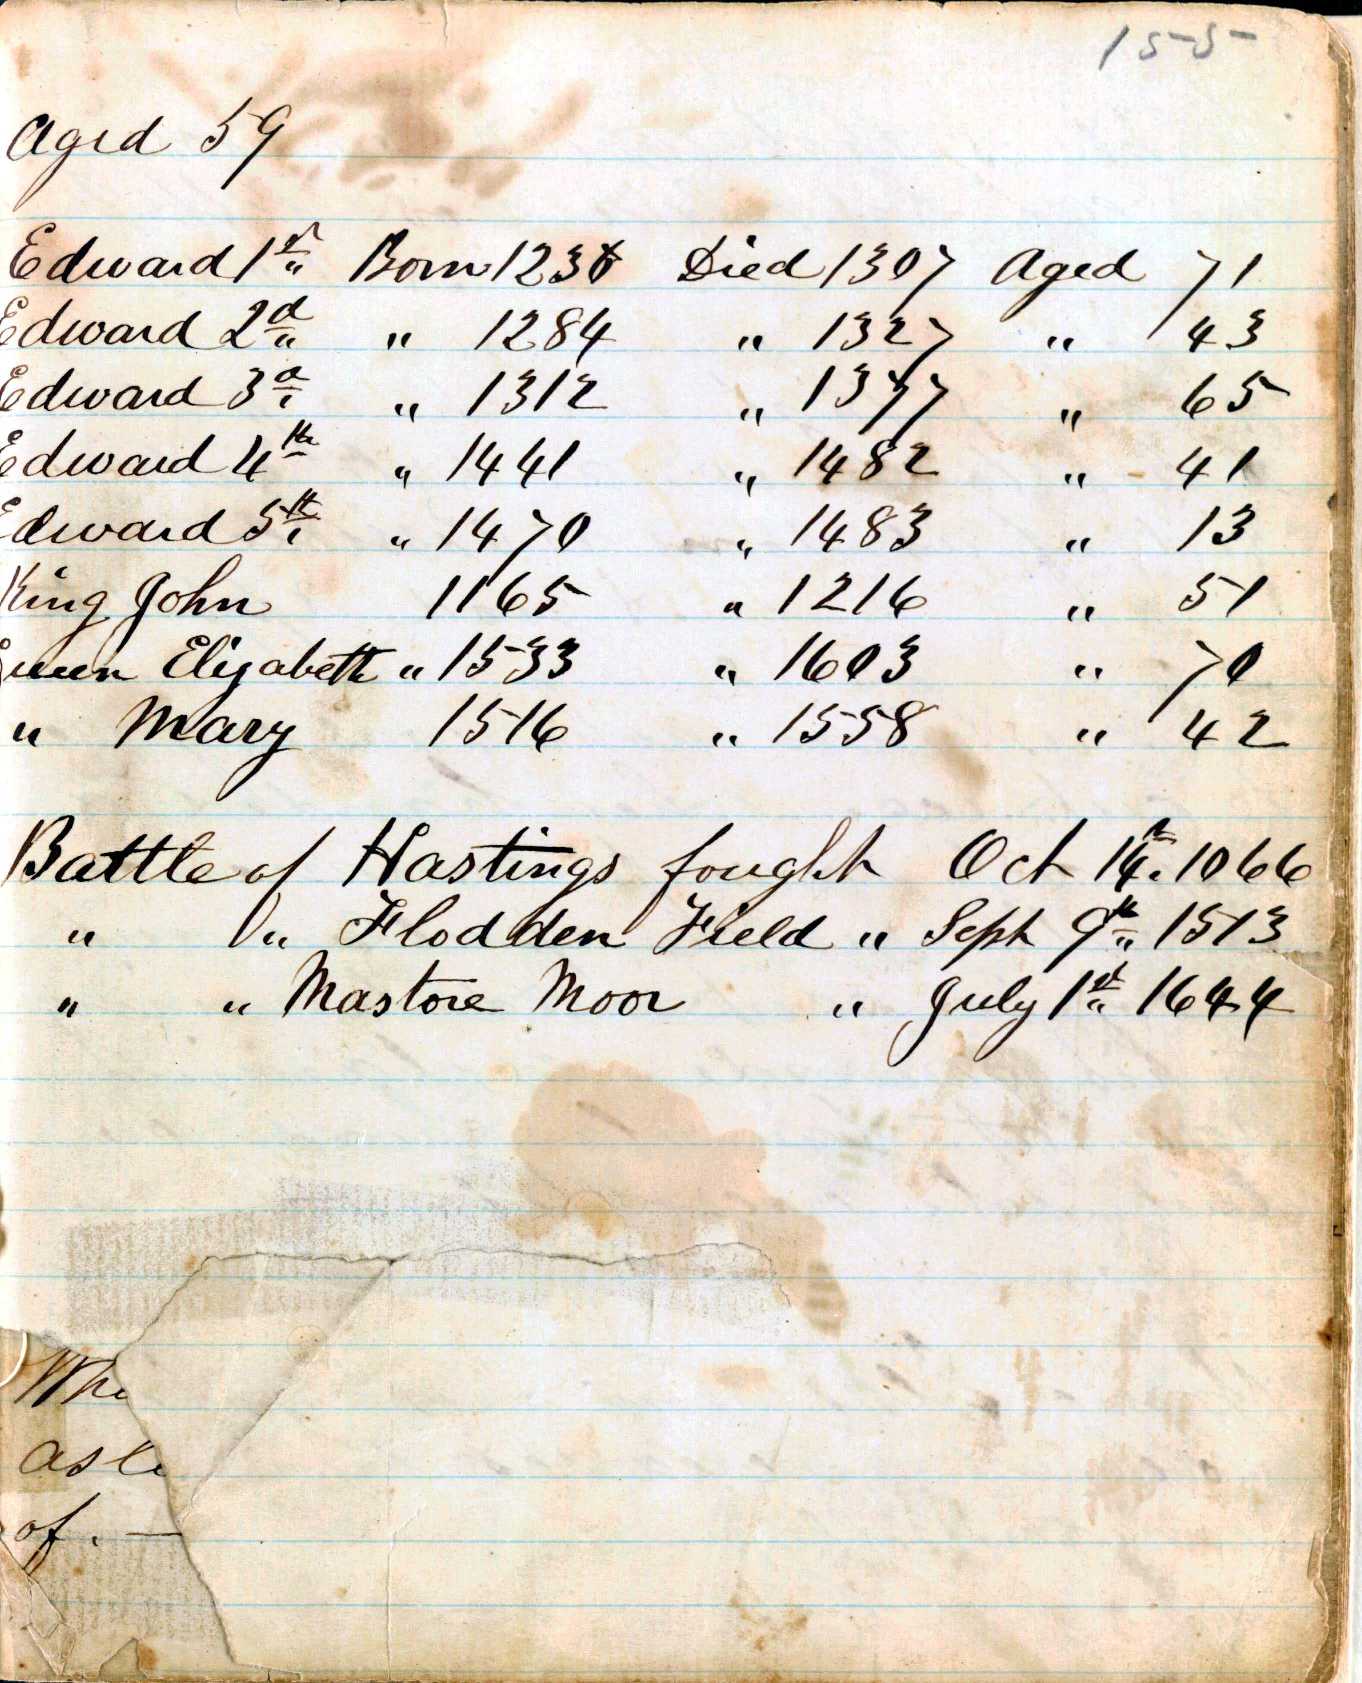 155
Aged 59
Edward 1st Born 1236 Died 1307 Aged 71
Edward 2d " 1284 " 1327 " 43
Edward 3d " 1312 " 1377 " 65
Edward 4th " 1441 " 1482 " 41
Edward 5th " 1470 " 1483 " 13
King John 1165 " 1216 " 51
Queen Elizabeth " 1533 " 1603 " 70
" Mary 1516 " 1558 " 42
Battle of Hastings fought Oct 14th. 1066
" " Flodden Field " Sept 9th 1513
" " Mastore Moor " July 1st 1644
Whe
aske
of. —